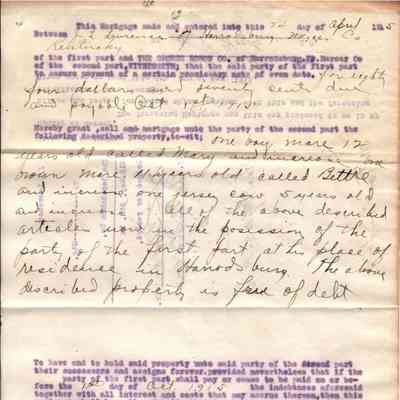 This Mortgage made and entered into this 12 day of April 1915
Between J. L. Lawrence of Harrodsburg Mercer Co
Kentucky
of the first part and THE GRANGE SUPPLY CO. of Harrodsburg, Ky. Mercer Co
of the second part, WITNESSETH; that the said party of the first part
to secure payment of a certain promissory note of even date, for eighty
four dollars and seventy cents due
and payable Oct 1915
Hereby grant, sell and mortgage unto the party of the second part the
following described property, to-wit; one bay mare 12
years old called Mary and increase one
brown mare 11 years old called Bettie
and increase one Jersey cow 5 years old
and increase all of the above described
articles now in the possession of the
party of the first part at his place of
residense in Harrodsburg. The above
described property is free of debt
To have and to hold said property unto said party of the second part
their successors and assigns forever, provided nevertheless that if the
party of the first part, shall pay or cause to be paid on or be-
fore the 12 day of Oct 1915 the indebtness aforesaid
together with all interest and costs that may accrue thereon, then this